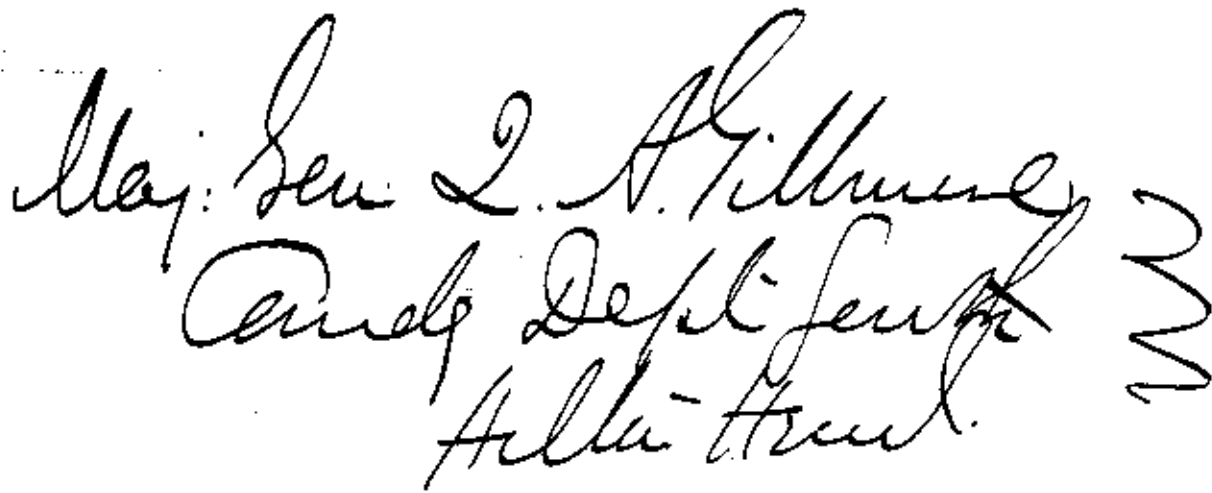 Maj: Gen Q. A. Gillmore,
Comdg Dept South
Hilton Head.